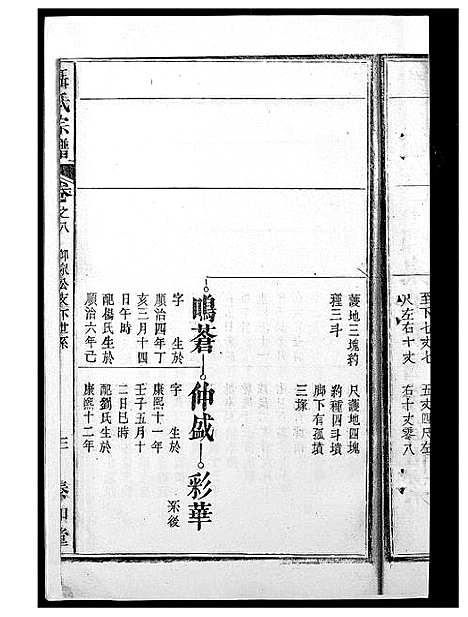 至下七丈七
尺左右十丈
五丈四尺左
右十丈零八
護地三塊約
種三斗
尺護地四塊
約種四斗墳
脚下有孤墳
三塚
鳴蒼
仲盛
彩華
字　生於
順治四年丁
亥三月十四
日午時
配楊氏生於
順治六年己
字　生於
康熙十一年
壬子五月十
二日巳時
配劉氏生於
康熙十二年
系後
聶氏宗譜
卷之八
三